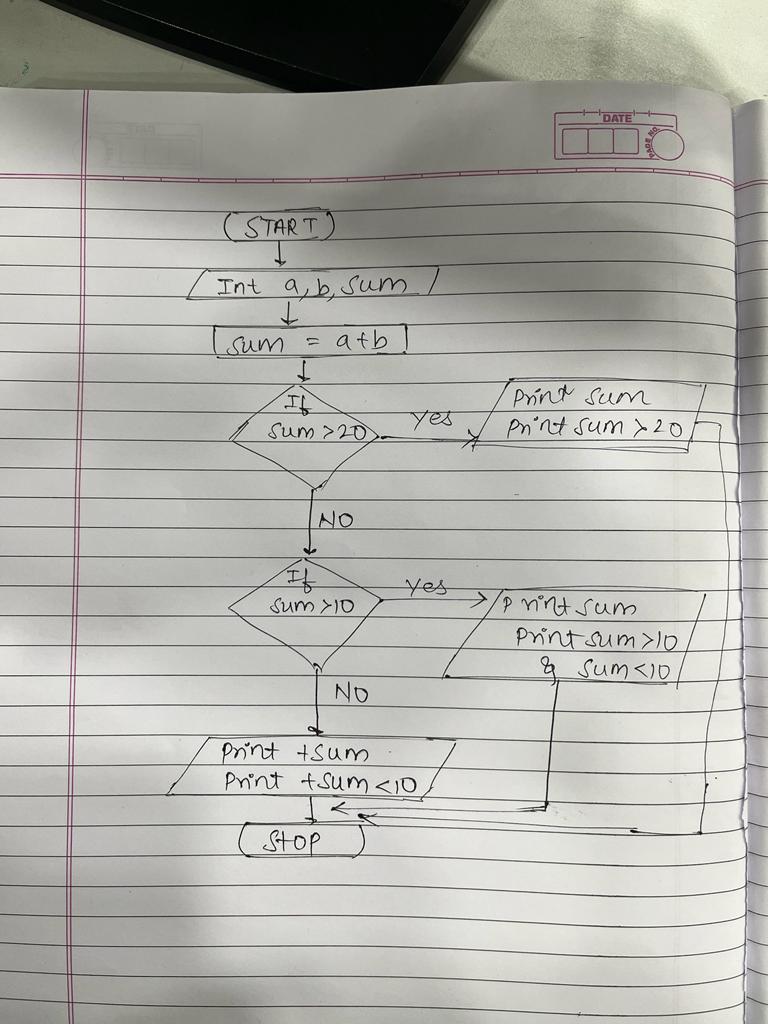 DATE
PAGE NO.
START
Int a, b, sum
sum = a+b
If
sum >20
Yes
Print sum
Print sum >20
NO
If
sum >10
Yes
Print sum
Print sum >10
& sum <10
NO
Print +sum
Print +sum <10
Stop